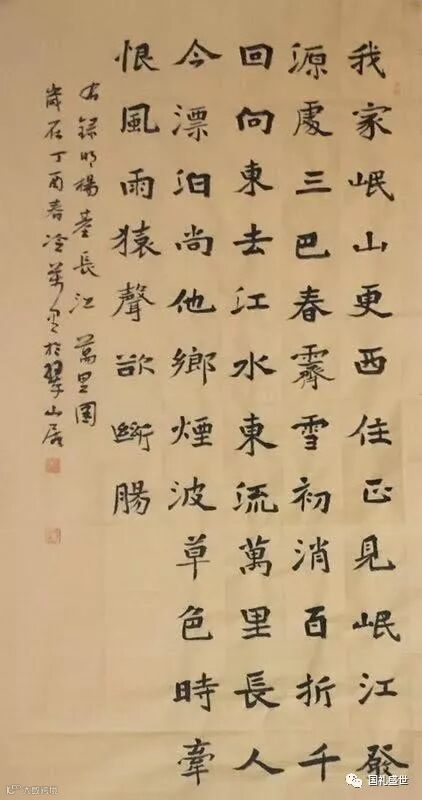 我家岷山更西住正見岷江發
源處三巴春霽雪初消百折千
回向東去江水東流萬里長人
今漂泊尚他鄉煙波草色時牽
恨風雨猿聲欲斷腸
右錄明楊基長江萬里圖
歲在丁酉春冷於翠山居
大数跨境
国礼盛世